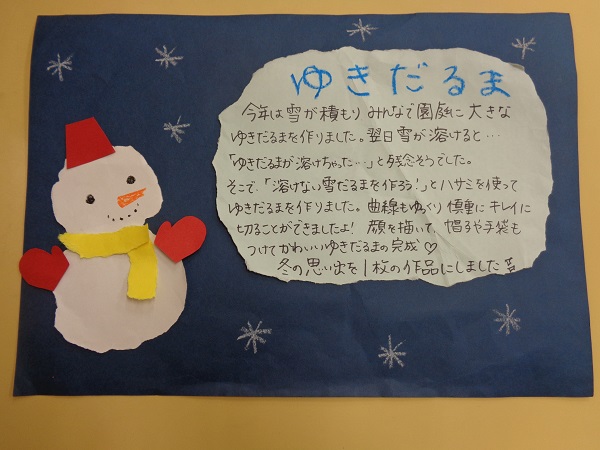 ゆきだるま
今年は雪が積もり みんなで園庭に大きな
ゆきだるまを作りました。翌日雪が溶けると…
「ゆきだるまが溶けちゃった…」と残念そうでした。
そこで、「溶けない雪だるまを作ろう!」とハサミを使って
ゆきだるまを作りました。曲線もゆっくり慎重にキレイに
切ることができましたよ! 顔を描いて、帽子や手袋も
つけてかわいいゆきだるまの完成♡
冬の思い出を1枚の作品にしました